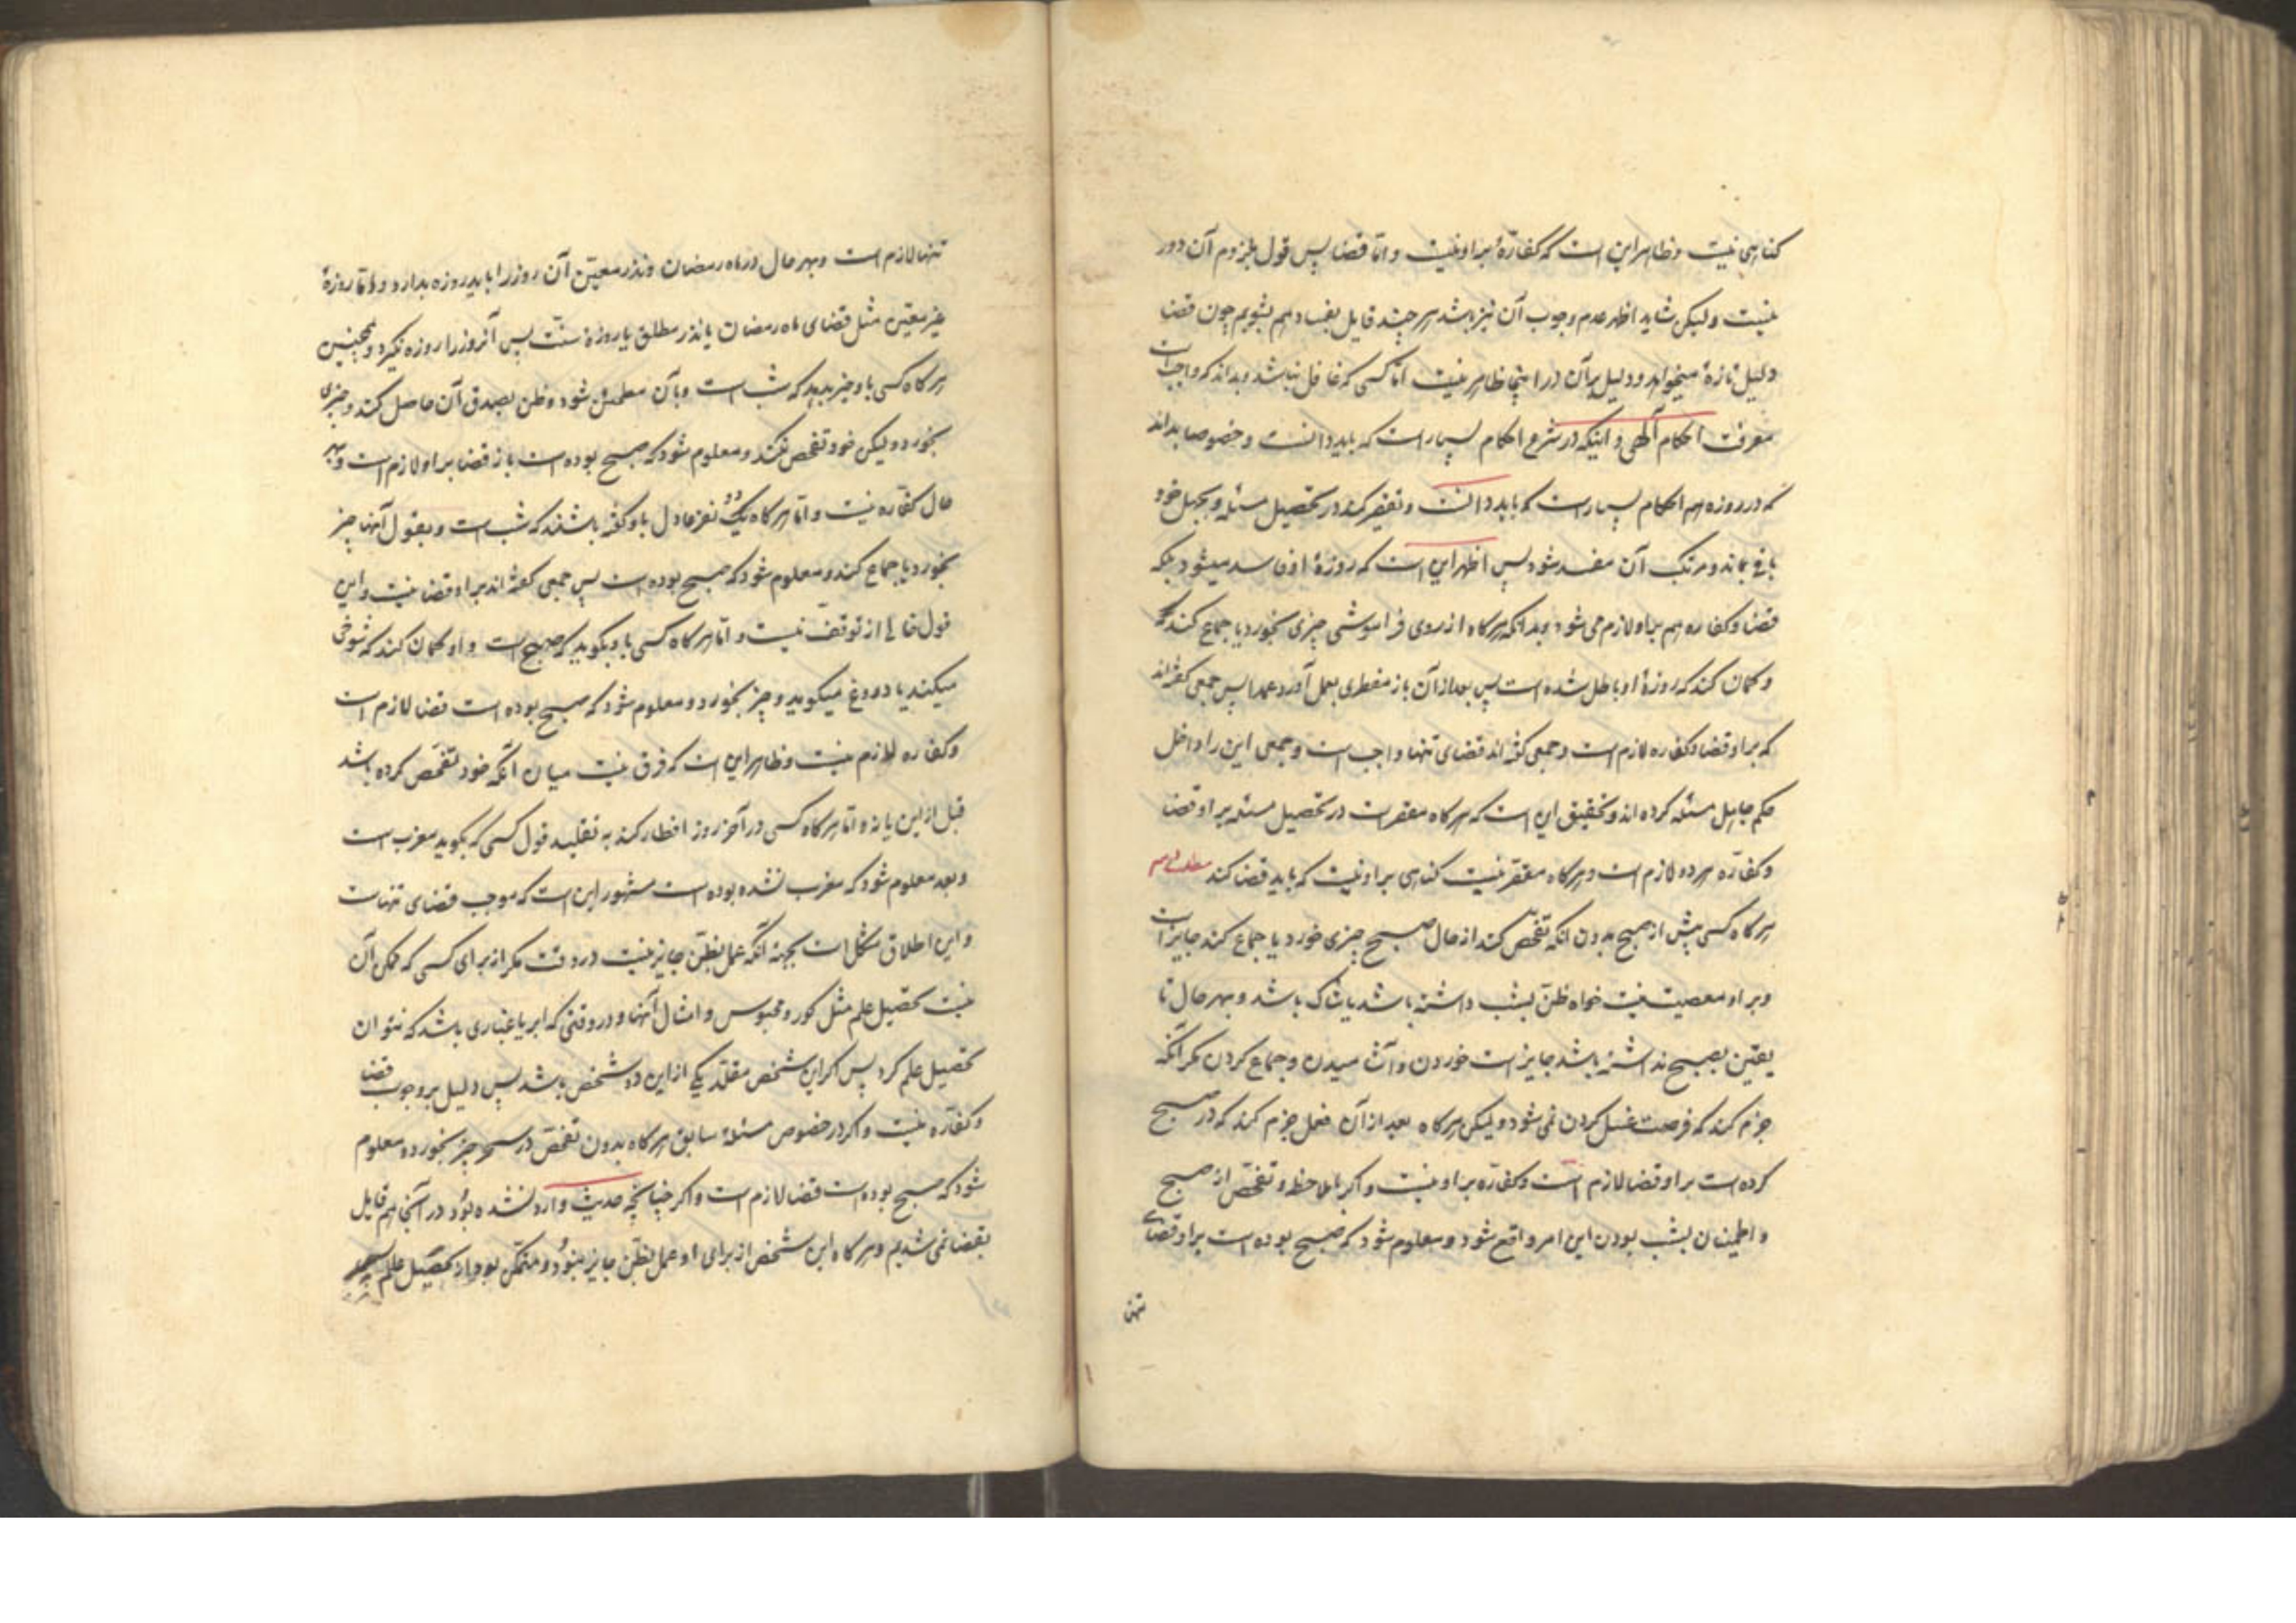 کناهی نیست وظاهر این است که کفارهٔ بر او نیست و اما قضا پس قول بلزوم آن دور
نیست ولیکن شاید اظهر عدم وجوب آن نیز باشد هر چند قایل بفساد هم بشویم چون قضا
دلیل تازهٔ میخواهد و دلیل بر آن در اینجا ظاهر نیست اما کسی که غافل نباشد و بداند که واجبست
معرفت احکام آلهی و اینکه در شرع احکام بسیار است که باید دانست و خصوصا بداند
که در روزه هم احکام بسیار است که باید دانست و تقصیر کند در تحصیل مسئله و بجهل خود
باقی بماند و مرتکب آن مفسد شود پس اظهر این است که روزهٔ او فاسد میشود بلکه
قضا و کفاره هم بر او لازم می شود و بدانکه هر کاه از روی فراموشی چیزی بخورد یا جماع کند
و کمان کند که روزهٔ او باطل شده است پس بعد از آن باز مفطری بعمل آورد عمدا پس جمعی کفته‌اند
که بر او قضا و کفاره لازم است و جمعی کفته اند قضای تنها واجب است و جمعی این را داخل
حکم جاهل مسئله کرده اند و تحقیق این است که هر کاه مقصر است در تحصیل مسئله بر او قضا
و کفاره هر دو لازم است و هر کاه مقصر نیست کناهی بر او نیست که باید قضا کند مطلب دویم
هر کاه کسی پیش از صبح بدون انکه تفحص کند از حال صبح چیزی خورد یا جماع کند جایز است
و بر او معصیت نیست خواه ظن بشب داشته باشد یا شاک باشد و بهر حال تا
یقین بصبح نداشته باشد جایز است خوردن و آشامیدن و جماع کردن مکر آنکه
جزم کند که فرصت غسل کردن نمی شود و لیکن هر کاه بعد از آن فعل جزم کند که در صبح
کرده است بر او قضا لازم است و کفاره بر او نیست و اکر باملاحظه و تفحص از صبح
و اطمینان بشب بودن این امر واقع شود و معلوم شود که صبح بوده است بر او قضای
تنها
تنها لازم است و بهر حال در ماه رمضان و نذر معین آن روز را باید روزه بدارد و اما روزهٔ
غیر معین مثل قضای ماه رمضان یا نذر مطلق یا روزهٔ سنت پس آنروز را روزه نکیرد و همچنین
هر کاه کسی باو خبر بدهد که شب است و بآن مطمئن شود و ظن بصدق آن حاصل کند و چیزی
بخورد و لیکن خود تفحص نکند و معلوم شود که صبح بوده است باز قضا بر او لازم است و بهر
حال کفاره نیست و اما هر کاه یک دو نفر عادل باو کفته باشند که شب است و بقول آنها چیز
بخورد یا جماع کند و معلوم شود که صبح بوده است پس جمعی کفته اند بر او قضا نیست و این
قول خالی از توقف نیست و اما هر کاه کسی باو بکوید که صبح است و او کمان کند که شوخی
میکند یا دروغ میکوید و چیز بخورد و معلوم شود که صبح بوده است قضا لازم است
و کفاره لازم نیست و ظاهر این است که فرق نیست میان آنکه خود تفحص کرده باشد
قبل از این یا نه و اما هر کاه کسی در آخر روز افطار کند به تقلید قول کسی که بکوید مغرب است
و بعد معلوم شود که مغرب نشده بوده است مشهور این است که موجب قضای تنهاست
و این اطلاق مشکل است بجهة آنکه عمل بظن جایز نیست در وقت مکر از برای کسی که ممکن آن
نیست تحصیل علم مثل کور و محبوس و امثال آنها و در وقتی که ابر یا غباری باشد که نتوان
تحصیل علم کرد پس اکر این شخص مقلد یکی از این دو شخص باشد پس دلیل بر وجوب قضا
و کفاره نیست و اکر در خصوص مسئلهٔ سابق هر کاه بدون تفحص در سحر چیز بخورد و معلوم
شود که صبح بوده است قضا لازم است و اکر چنانچه حدیث وارد نشده بود در آنجا هم قایل
بقضا نمی شدیم و هر کاه این شخص از برای او عمل بظن جایز نبود و متمکن بود از تحصیل علم